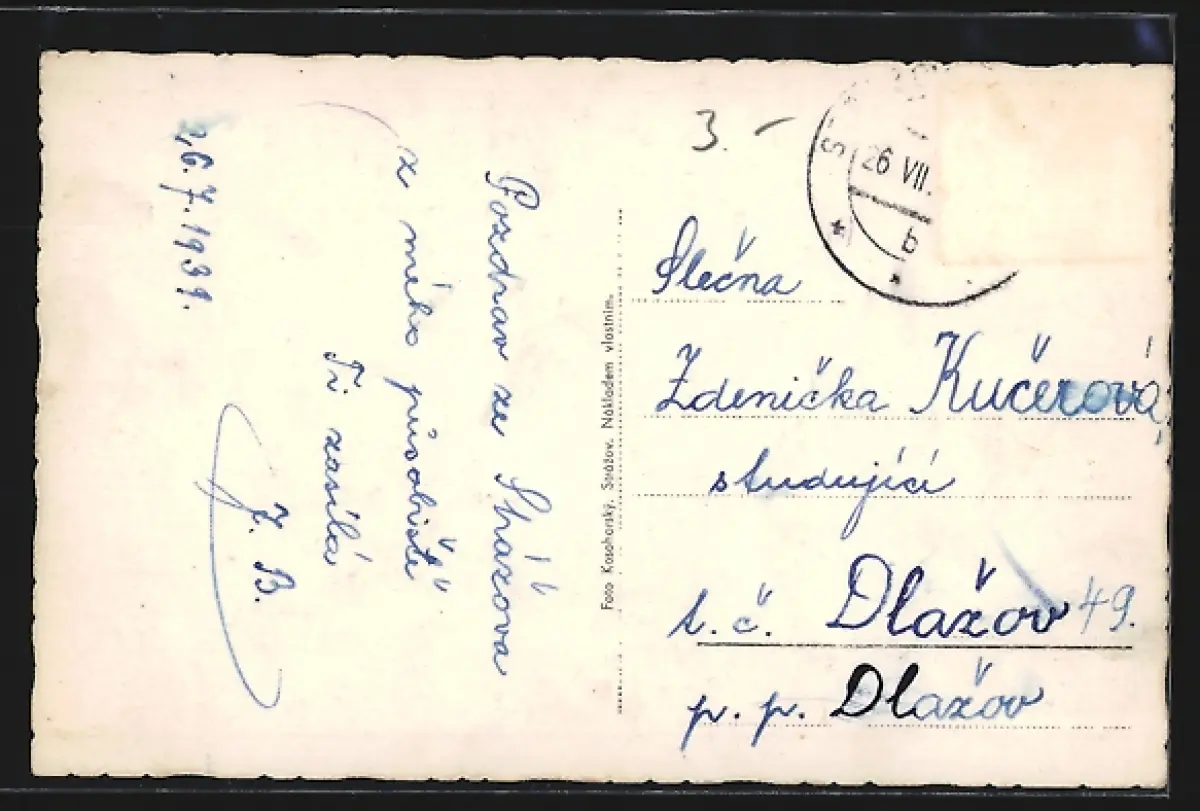 Pozdrav ze Strážova
z mého působiště
Ti zasílá
J. B.
26.7.1939.
Foto Kosohorský, Strážov. Nákladem vlastním.
3.–
26 VII.
b
Slečna
Zdenička Kučerová,
studující
t. č. Dlažov 49.
p. p. Dlažov